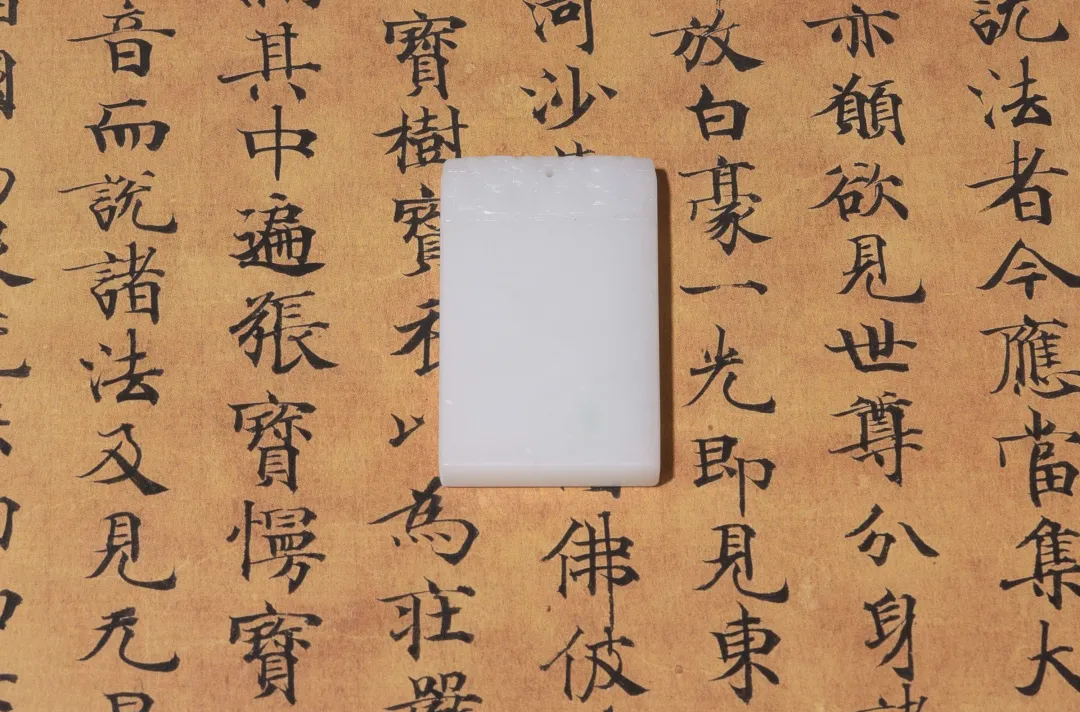 說法者今應當集大
亦願欲見世尊分身
放白豪一光即見東
河沙佛彼
寶樹寶為莊嚴
其中遍張寶慢寶
音而說諸法及見无